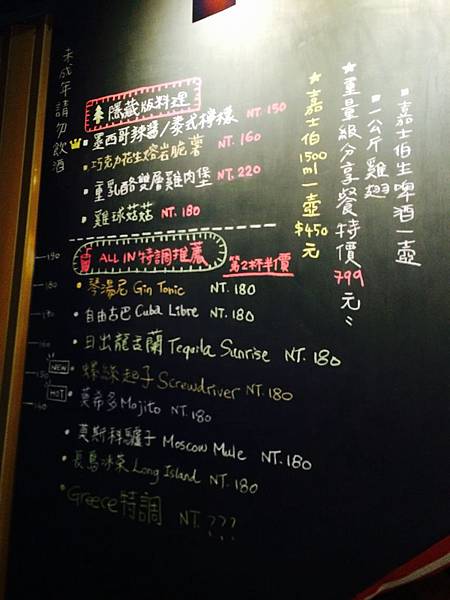 未成年請勿飲酒
隱藏版料理
墨西哥辣醬/泰式檸檬 NT.150
巧克力花生熔岩脆薯 NT.160
重乳酪雙層雞肉堡 NT.220
雞球菇菇 NT.180
ALL IN 特調推薦
第2杯半價
琴湯尼 Gin Tonic NT.180
自由古巴 Cuba Libre NT.180
日出龍舌蘭 Tequila Sunrise NT.180
螺絲起子 Screwdriver NT.180
莫希多 Mojito NT.180
莫斯科驢子 Moscow Mule NT.180
長島冰茶 Long Island NT.180
Greece特調 NT.???
190
180
170
160
150
140
NEW
HOT
嘉士伯生啤酒一壺
一公斤雞翅
★重量級分享餐特價799元
★嘉士伯1500ml一壺$450元